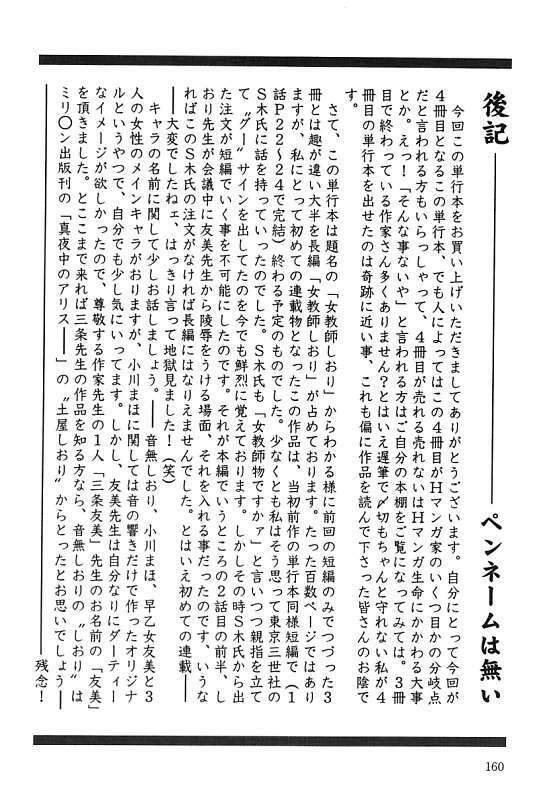 後記
ペンネームは無い
今回この単行本をお買い上げいただきましてありがとうございます。自分にとって今回が
4冊目となるこの単行本、でも人によってはこの4冊目がHマンガ家のいくつ目かの分岐点
だと言われる方もいらっしゃって、4冊目が売れる売れないはHマンガ生命にかかわる大事
とか。えっ!「そんな事ないや」と言われる方はご自分の本棚をご覧になってみては。3冊
目で終わっている作家さん多くありません?とはいえ遅筆で〆切もちゃんと守れない私が4
冊目の単行本を出せたのは奇跡に近い事、これも偏に作品を読んで下さった皆さんのお陰で
す。
さて、この単行本は題名の「女教師しおり」からわかる様に前回の短編のみでつづった3
冊とは趣が違い大半を長編「女教師しおり」が占めております。たった百数ページではあり
ますが、私にとって初めての連載物となったこの作品は、当初前作の単行本同様短編で(1
話P22〜24で完結)終わる予定のものでした。少なくとも私はそう思って東京三世社の
S木氏に話を持っていったのでした。S木氏も「女教師物ですかァ」と言いつつ親指を立て
て〝グー〟サインを出してたのを今でも鮮烈に覚えております。しかしその時S木氏から出
た注文が短編でいく事を不可能にしたのです。それが本編でいうところの2話目の前半、し
おり先生が会議中に友美先生から陵辱をうける場面、それを入れる事だったのです。いうな
ればこのS木氏の注文がなければ長編にはなりえませんでした。とはいえ初めての連載──
──大変でしたねェ、はっきり言って地獄見ました!(笑)
キャラの名前に関して少しお話しましょう。──音無しおり、小川まほ、早乙女友美と3
人の女性のメインキャラがおりますが、小川まほに関しては音の響きだけで作ったオリジナ
ルというやつで、自分でも少し気にいってます。しかし、友美先生は自分なりにダーティー
なイメージが欲しかったので、尊敬する作家先生の1人「三条友美」先生のお名前の「友美」
を頂きました。とここまで来れば三条先生の作品を知る方なら、音無しおりの〝しおり〟は
ミリ〇ン出版刊の「真夜中のアリス──」の〝土屋しおり〟からとったとお思いでしょう──
残念!
160